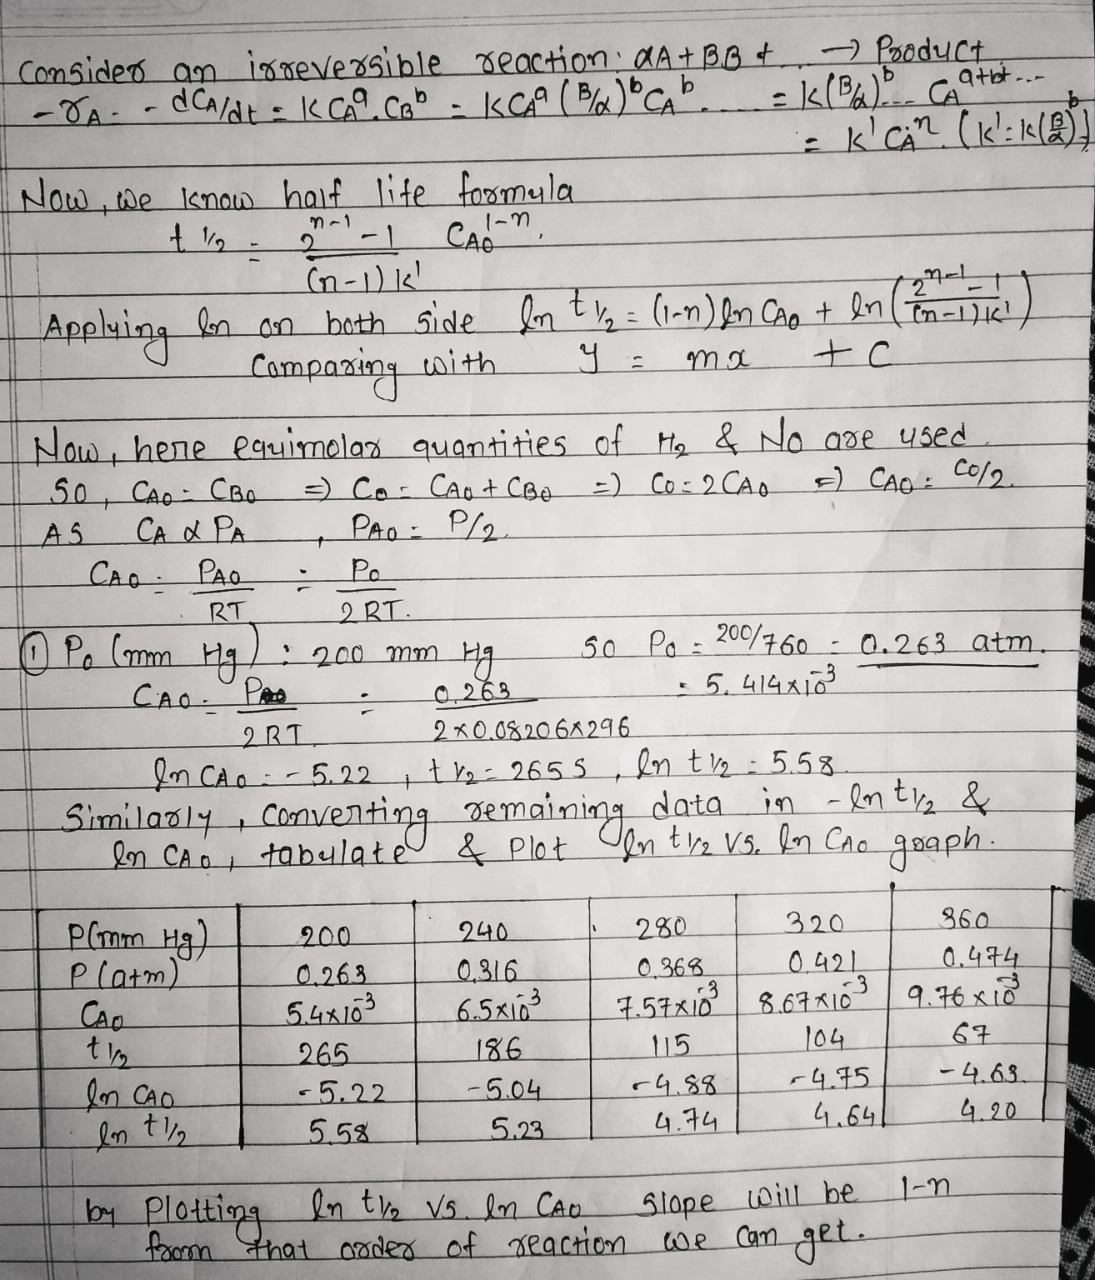 Consider an irreversible reaction: αA + βB + ... → Product
-rA = - dCA/dt = K CA^a. CB^b = K CA^a (β/α)^b CA^b .... = K(β/α)^b... CA^a+b+...
= K' CA^n. (K' = K(β/α)^b)
Now, we know half life formula
t 1/2 = 2^n-1 -1 CAo^1-n.
(n-1) K'
Applying ln on both side ln t 1/2 = (1-n) ln CAo + ln (2^n-1 -1 / (n-1)K')
Comparing with y = mx + C
Now, here equimolar quantities of H2 & No are used.
So, CAO = CBO ⇒ Co = CAO + CBO ⇒ Co = 2 CAO ⇒ CAO = Co/2.
AS CA α PA , PAO = P/2.
CAO = PAO = Po
RT 2 RT.
① Po (mm Hg) : 200 mm Hg so Po = 200/760 = 0.263 atm.
CAO = = 0.263 = 5.414x10^-3
2 RT 2x0.08206x296
ln CAO = -5.22 , t 1/2 = 265 s , ln t 1/2 = 5.58
Similarly, converting remaining data in - ln t 1/2 &
ln CAO, tabulate & Plot ln t 1/2 vs. ln CAO graph.
P(mm Hg) 200 240 280 320 360
P (atm) 0.263 0.316 0.368 0.421 0.474
CAO 5.4x10^-3 6.5x10^-3 7.57x10^-3 8.67x10^-3 9.76x10^-3
t 1/2 265 186 115 104 67
ln CAO -5.22 -5.04 -4.88 -4.75 -4.63
ln t 1/2 5.58 5.23 4.74 4.64 4.20
by Plotting ln t 1/2 vs. ln CAO slope will be 1-n
from that order of reaction we can get.